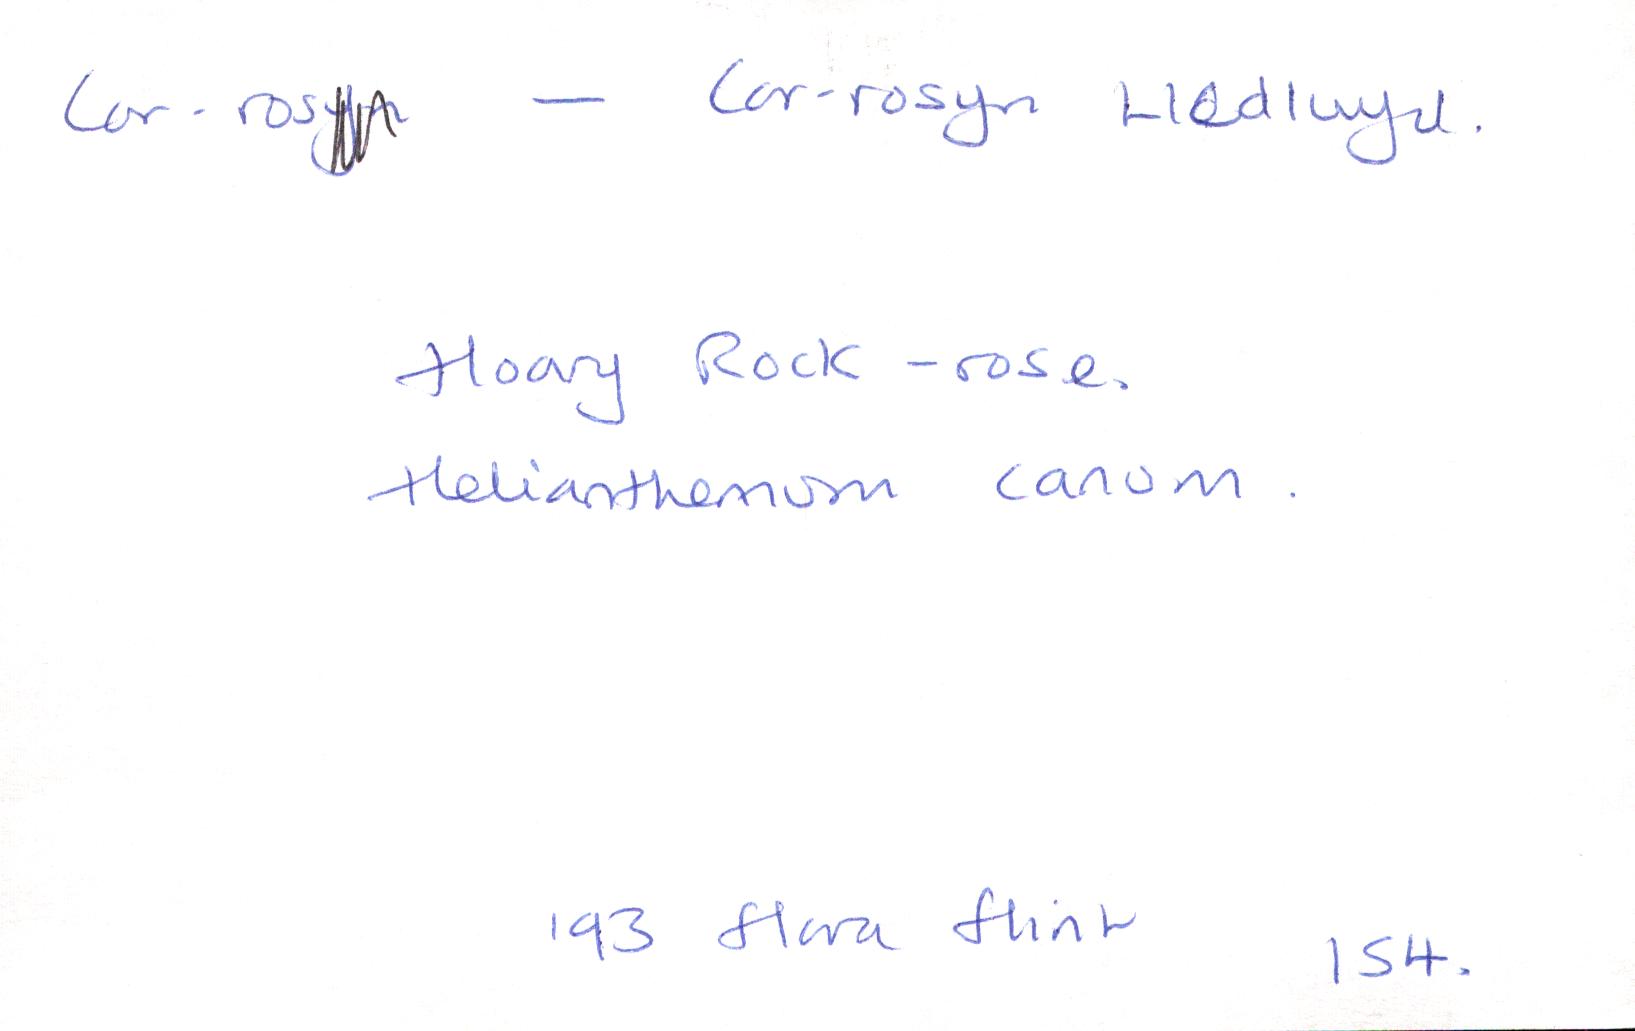 Cor-rosyn — Cor-rosyn Lledlwyd.
Hoary Rock-rose.
Helianthemum canum.
193 Flora Flint
154.